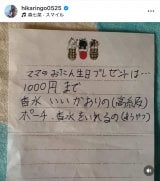 hikaringo0525
森七菜 · スマイル
ママのおたん生日プレゼントは…
1000円まで
香水 いいかおりの(高級店)
ポーチ・香水をいれるの(ほうせつ)